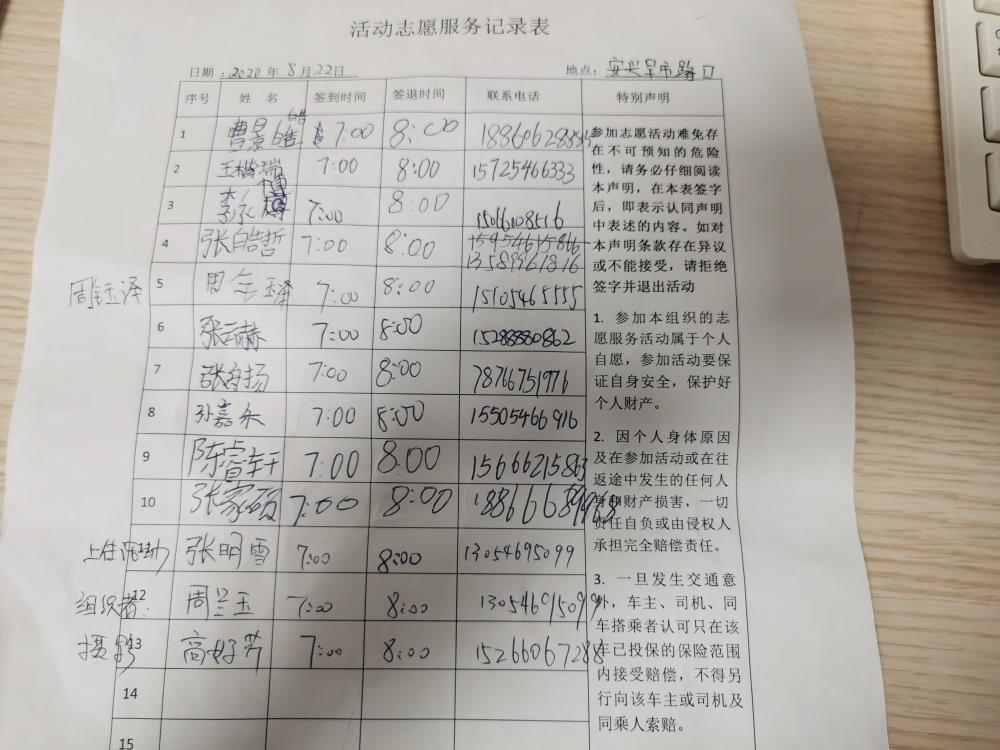 活动志愿服务记录表
日期：2020年8月22日 地点：安兴早市路口
序号 姓 名 签到时间 签退时间 联系电话 特别声明
1 曹景皓 7:00 8:00
2 王 瑞 7:00 8:00 15725466333
3 李 7:00 8:00 15066108516
4 张皓哲 7:00 8:00 15954615866
13589967816
周钰泽 5 周金玉泽 7:00 8:00 15105465555
6 张云赫 7:00 8:00 15288880862
7 张舟扬 7:00 8:00 78766751976
8 孙嘉禾 7:00 8:00 15505466916
9 陈睿轩 7:00 8:00 15666215863
10 张家硕 7:00 8:00
张明雪 7:00 8:00 13054695099
组织者: 12 周兰玉 7:00 8:00 13054695099
摄影 13 高好芹 7:00 8:00 15266067288
14
15
参加志愿活动难免存
在不可预知的危险
性，请务必仔细阅读
本声明，在本表签字
后，即表示认同声明
中表述的内容。如对
本声明条款存在异议
或不能接受，请拒绝
签字并退出活动
1. 参加本组织的志
愿服务活动属于个人
自愿，参加活动要保
证自身安全，保护好
个人财产。
2. 因个人身体原因
及在参加活动或在往
返途中发生的任何人
身和财产损害，一切
责任自负或由侵权人
承担完全赔偿责任。
3. 一旦发生交通意
外，车主、司机、同
车搭乘者认可只在该
车已投保的保险范围
内接受赔偿，不得另
行向该车主或司机及
同乘人索赔。